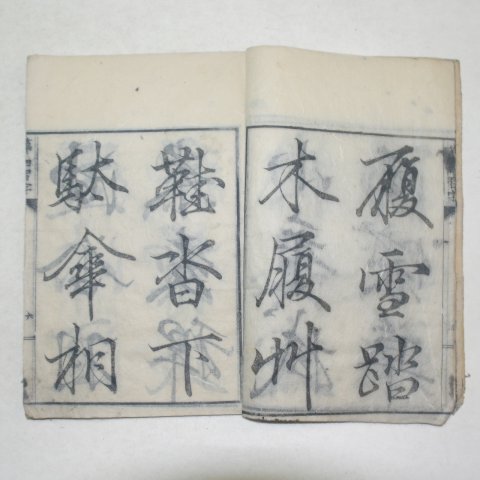 履雪踏
木履艸
鞋沓下
馱傘相